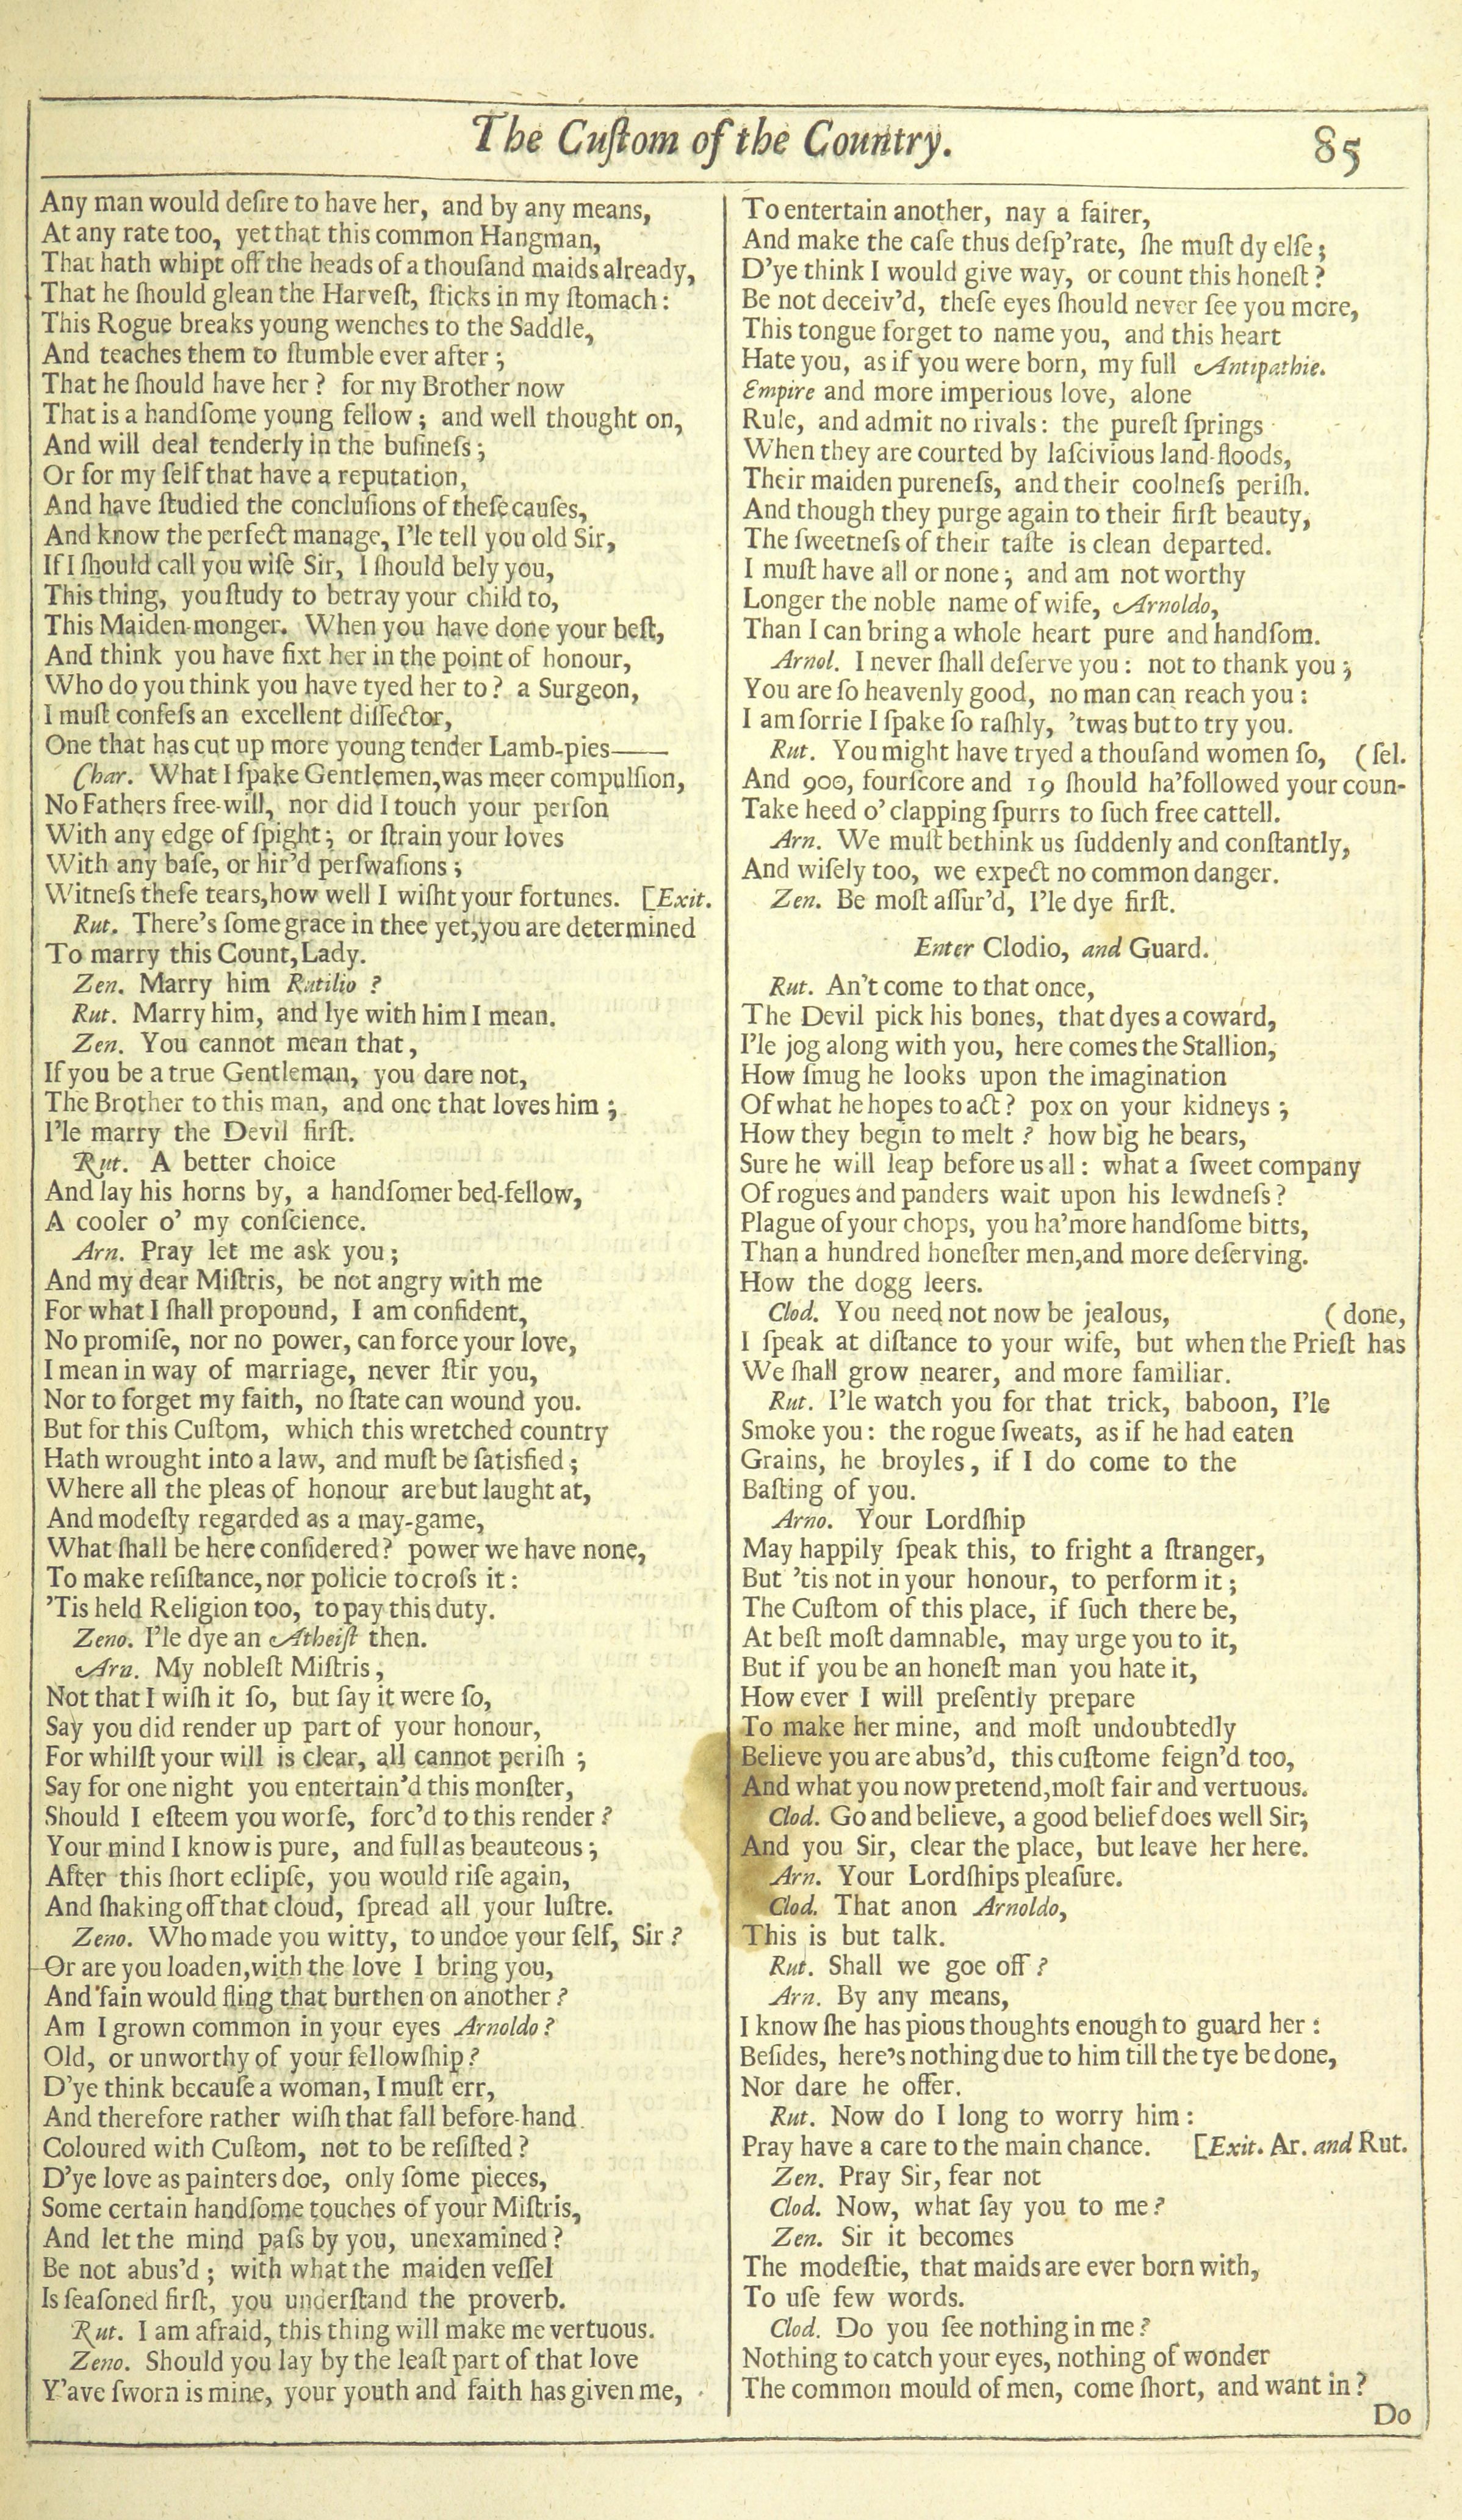 The Cuſtom of the Country. 85
Any man would deſire to have her, and by any means,
At any rate too, yet that this common Hangman,
That hath whipt off the heads of a thouſand maids already,
That he ſhould glean the Harveſt, ſticks in my ſtomach:
This Rogue breaks young wenches to the Saddle,
And teaches them to ſtumble ever after;
That he ſhould have her? for my Brother now
That is a handſome young fellow; and well thought on,
And will deal tenderly in the buſineſs;
Or for my ſelf that have a reputation,
And have ſtudied the concluſions of theſe cauſes,
And know the perfect manage, I'le tell you old Sir,
If I ſhould call you wiſe Sir, I ſhould bely you,
This thing, you ſtudy to betray your child to,
This Maiden-monger. When you have done your beſt,
And think you have fixt her in the point of honour,
Who do you think you have tyed her to? a Surgeon,
I muſt confeſs an excellent diſſector,
One that has cut up more young tender Lamb-pies——
Char. What I ſpake Gentlemen, was meer compulſion,
No Fathers free-will, nor did I touch your perſon
With any edge of ſpight; or ſtrain your loves
With any baſe, or hir'd perſwaſions;
Witneſs theſe tears, how well I wiſht your fortunes. [Exit.
Rut. There's ſome grace in thee yet, you are determined
To marry this Count, Lady.
Zen. Marry him Rutilio?
Rut. Marry him, and lye with him I mean.
Zen. You cannot mean that,
If you be a true Gentleman, you dare not,
The Brother to this man, and one that loves him;
I'le marry the Devil firſt.
Rut. A better choice
And lay his horns by, a handſomer bed-fellow,
A cooler o' my conſcience.
Arn. Pray let me ask you;
And my dear Miſtris, be not angry with me
For what I ſhall propound, I am confident,
No promiſe, nor no power, can force your love,
I mean in way of marriage, never ſtir you,
Nor to forget my faith, no ſtate can wound you.
But for this Cuſtom, which this wretched country
Hath wrought into a law, and muſt be ſatisfied;
Where all the pleas of honour are but laught at,
And modeſty regarded as a may-game,
What ſhall be here conſidered? power we have none,
To make reſiſtance, nor policie to croſs it:
'Tis held Religion too, to pay this duty.
Zeno. I'le dye an Atheiſt then.
Arn. My nobleſt Miſtris,
Not that I wiſh it ſo, but ſay it were ſo,
Say you did render up part of your honour,
For whilſt your will is clear, all cannot periſh;
Say for one night you entertain'd this monſter,
Should I eſteem you worſe, forc'd to this render?
Your mind I know is pure, and full as beauteous;
After this ſhort eclipſe, you would riſe again,
And ſhaking off that cloud, ſpread all your luſtre.
Zeno. Who made you witty, to undoe your ſelf, Sir?
Or are you loaden, with the love I bring you,
And fain would fling that burthen on another?
Am I grown common in your eyes Arnoldo?
Old, or unworthy of your fellowſhip?
D'ye think becauſe a woman, I muſt err,
And therefore rather wiſh that fall before-hand
Coloured with Cuſtom, not to be reſiſted?
D'ye love as painters doe, only ſome pieces,
Some certain handſome touches of your Miſtris,
And let the mind paſs by you, unexamined?
Be not abus'd; with what the maiden veſſel
Is ſeaſoned firſt, you underſtand the proverb.
Rut. I am afraid, this thing will make me vertuous.
Zeno. Should you lay by the leaſt part of that love
Y'ave ſworn is mine, your youth and faith has given me,
To entertain another, nay a fairer,
And make the caſe thus deſp'rate, ſhe muſt dy elſe;
D'ye think I would give way, or count this honeſt?
Be not deceiv'd, theſe eyes ſhould never ſee you more,
This tongue forget to name you, and this heart
Hate you, as if you were born, my full Antipathie.
Empire and more imperious love, alone
Rule, and admit no rivals: the pureſt ſprings
When they are courted by laſcivious land-floods,
Their maiden pureneſs, and their coolneſs periſh.
And though they purge again to their firſt beauty,
The ſweetneſs of their taſte is clean departed.
I muſt have all or none; and am not worthy
Longer the noble name of wife, Arnoldo,
Than I can bring a whole heart pure and handſom.
Arnol. I never ſhall deſerve you: not to thank you;
You are ſo heavenly good, no man can reach you:
I am ſorrie I ſpake ſo raſhly, 'twas but to try you.
Rut. You might have tryed a thouſand women ſo, (ſel.
And 900, fourſcore and 19 ſhould ha' followed your coun-
Take heed o' clapping ſpurrs to ſuch free cattell.
Arn. We muſt bethink us ſuddenly and conſtantly,
And wiſely too, we expect no common danger.
Zen. Be moſt aſſur'd, I'le dye firſt.
Enter Clodio, and Guard.
Rut. An't come to that once,
The Devil pick his bones, that dyes a coward,
I'le jog along with you, here comes the Stallion,
How ſmug he looks upon the imagination
Of what he hopes to act? pox on your kidneys;
How they begin to melt? how big he bears,
Sure he will leap before us all: what a ſweet company
Of rogues and panders wait upon his lewdneſs?
Plague of your chops, you ha' more handſome bitts,
Than a hundred honeſter men, and more deſerving.
How the dogg leers.
Clod. You need not now be jealous, (done,
I ſpeak at diſtance to your wife, but when the Prieſt has
We ſhall grow nearer, and more familiar.
Rut. I'le watch you for that trick, baboon, I'le
Smoke you: the rogue ſweats, as if he had eaten
Grains, he broyles, if I do come to the
Baſting of you.
Arno. Your Lordſhip
May happily ſpeak this, to fright a ſtranger,
But 'tis not in your honour, to perform it;
The Cuſtom of this place, if ſuch there be,
At beſt moſt damnable, may urge you to it,
But if you be an honeſt man you hate it,
How ever I will preſently prepare
To make her mine, and moſt undoubtedly
Believe you are abus'd, this cuſtome feign'd too,
And what you now pretend, moſt fair and vertuous.
Clod. Go and believe, a good belief does well Sir;
And you Sir, clear the place, but leave her here.
Arn. Your Lordſhips pleaſure.
Clod. That anon Arnoldo,
This is but talk.
Rut. Shall we goe off?
Arn. By any means,
I know ſhe has pious thoughts enough to guard her:
Beſides, here's nothing due to him till the tye be done,
Nor dare he offer.
Rut. Now do I long to worry him:
Pray have a care to the main chance. [Exit. Ar. and Rut.
Zen. Pray Sir, fear not
Clod. Now, what ſay you to me?
Zen. Sir it becomes
The modeſtie, that maids are ever born with,
To uſe few words.
Clod. Do you ſee nothing in me?
Nothing to catch your eyes, nothing of wonder
The common mould of men, come ſhort, and want in?
Do